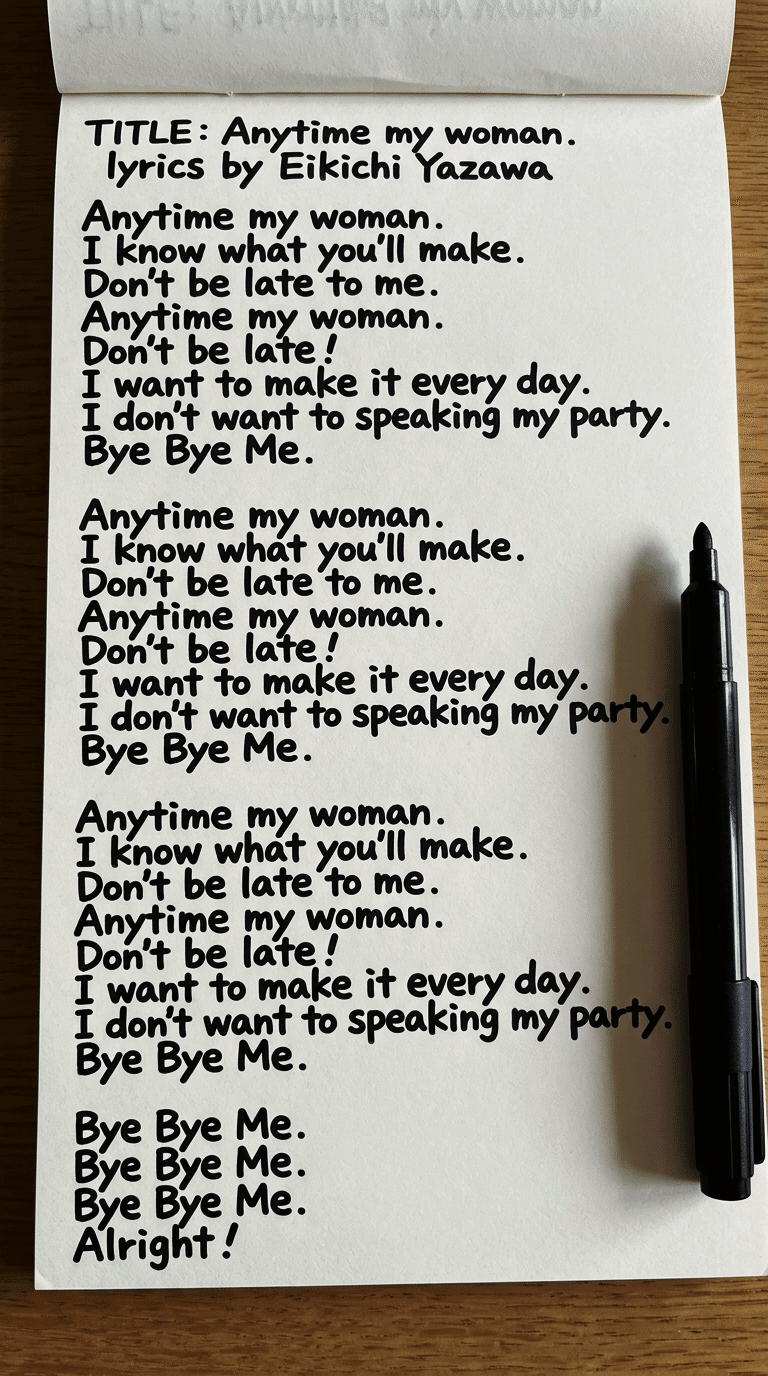 TITLE: Anytime my woman.
lyrics by Eikichi Yazawa
Anytime my woman.
I know what you'll make.
Don't be late to me.
Anytime my woman.
Don't be late!
I want to make it every day.
I don't want to speaking my party.
Bye Bye Me.
Anytime my woman.
I know what you'll make.
Don't be late to me.
Anytime my woman.
Don't be late!
I want to make it every day.
I don't want to speaking my party.
Bye Bye Me.
Anytime my woman.
I know what you'll make.
Don't be late to me.
Anytime my woman.
Don't be late!
I want to make it every day.
I don't want to speaking my party.
Bye Bye Me.
Bye Bye Me.
Bye Bye Me.
Bye Bye Me.
Alright!